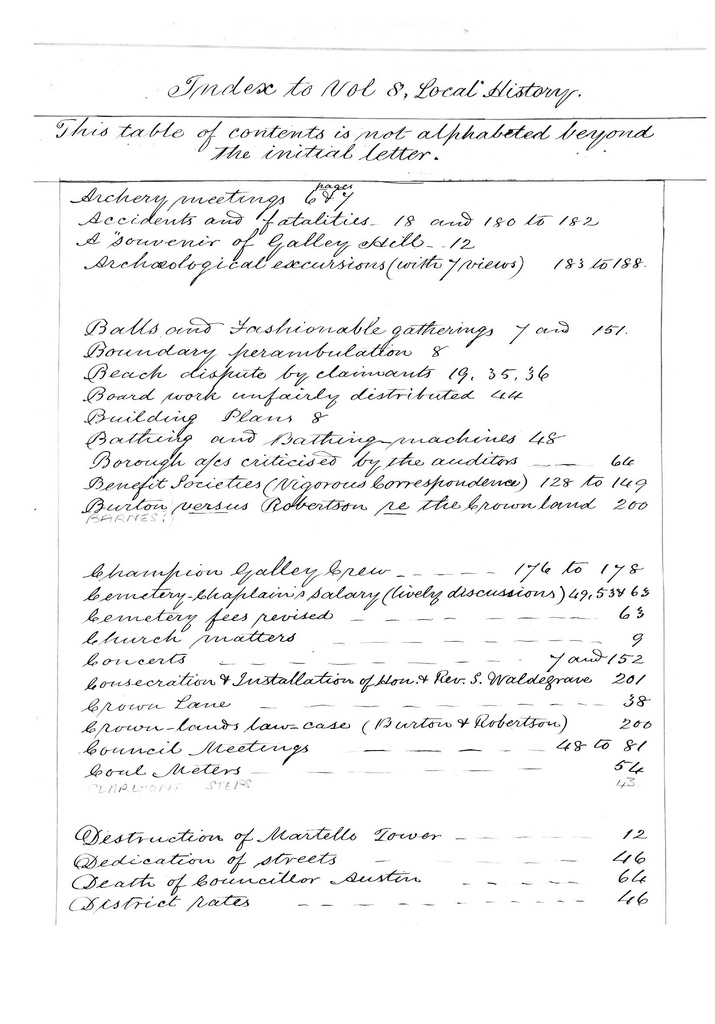 Index to Vol 8, Local History.
This table of contents is not alphabeted beyond
the initial letter.
pages
Archery meetings 6 & 7
Accidents and fatalities - 18 and 180 to 182
A "souvenir of Galley Hill - . 12
Archæological excursions (with 7 views) 183 to 188.
Balls and Fashionable gatherings 7 and 151.
Boundary perambulation 8
Beach dispute by claimants 19, 35, 36
Board work unfairly distributed 44
Building Plans 8
Bathing and Bathing-machines 48
Borough a/cs criticised by the auditors — — 64
Benefit Societies (Vigorous Correspondence) 128 to 149
Burton versus Robertson re the Crown land 200
BARNES?
Champion Galley Crew - - - - - 176 to 178
Cemetery-Chaplain's salary (lively discussions) 49, 53 & 63
Cemetery fees revised - - - - - - 63
Church matters - - - - - - - 9
Concerts - - - - - - - 7 and 152
Consecration & Installation of Hon. & Rev. S. Waldegrave 201
Crown Lane - - - - - - - - 38
Crown-lands law-case (Burton & Robertson) 200
Council Meetings — — — — 48 to 81
Coal Meters - - - - - - - 54
CLARMONT STEPS 43
Destruction of Martello Tower - - - - - - 12
Dedication of streets - - - - - - 46
Death of Councillor Austin - - - - - 64
District rates - - - - - - - - 46